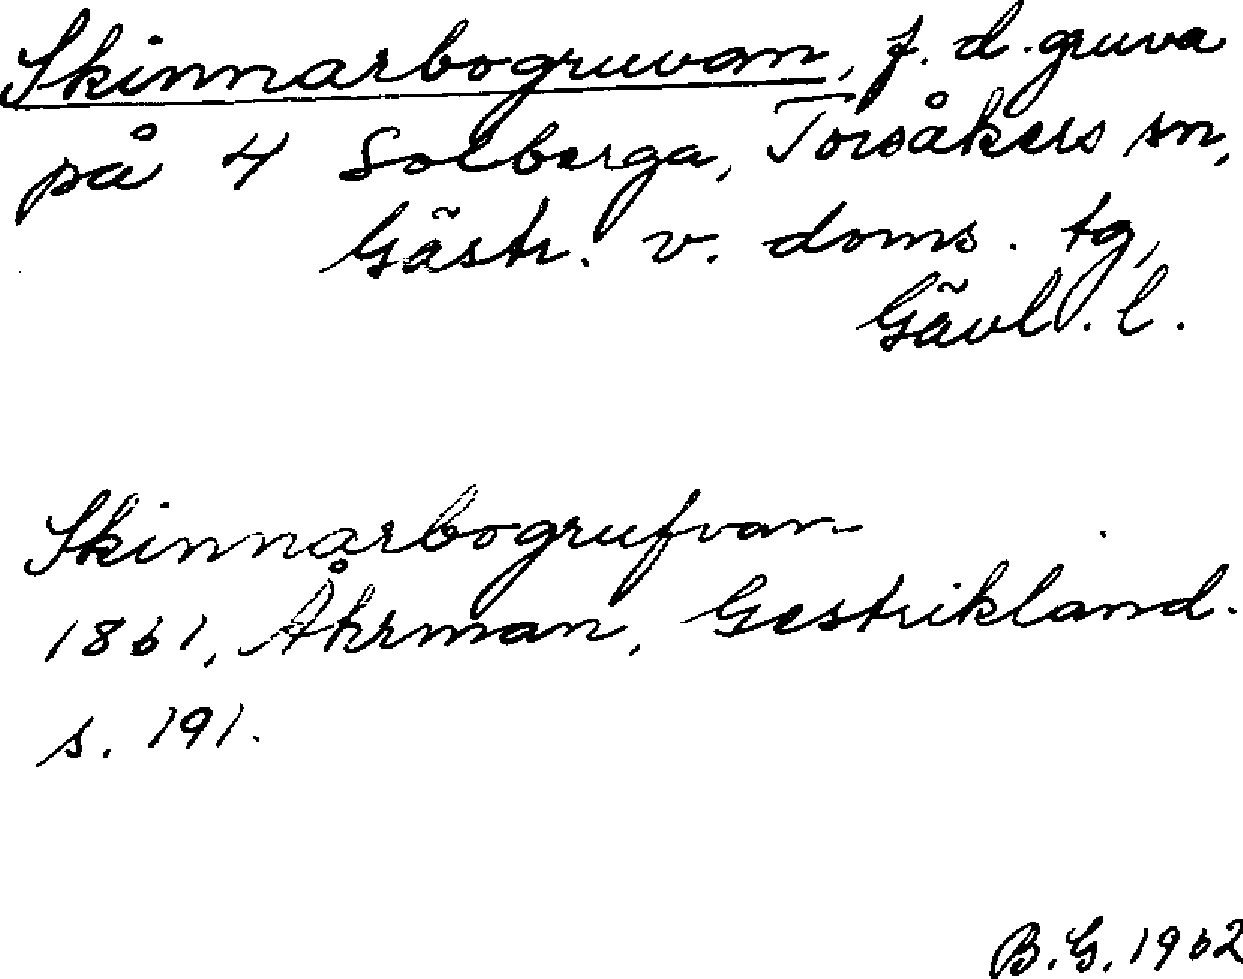 Skinnarbogruvan, f. d. gruva
på 4 Solberga, Torsåkers sn,
Gästr. v. doms. tg,
Gävl. l.
Skinnarbogrufvan
1861, Åhrman, Gestrikland.
s. 191.
B.G. 1962